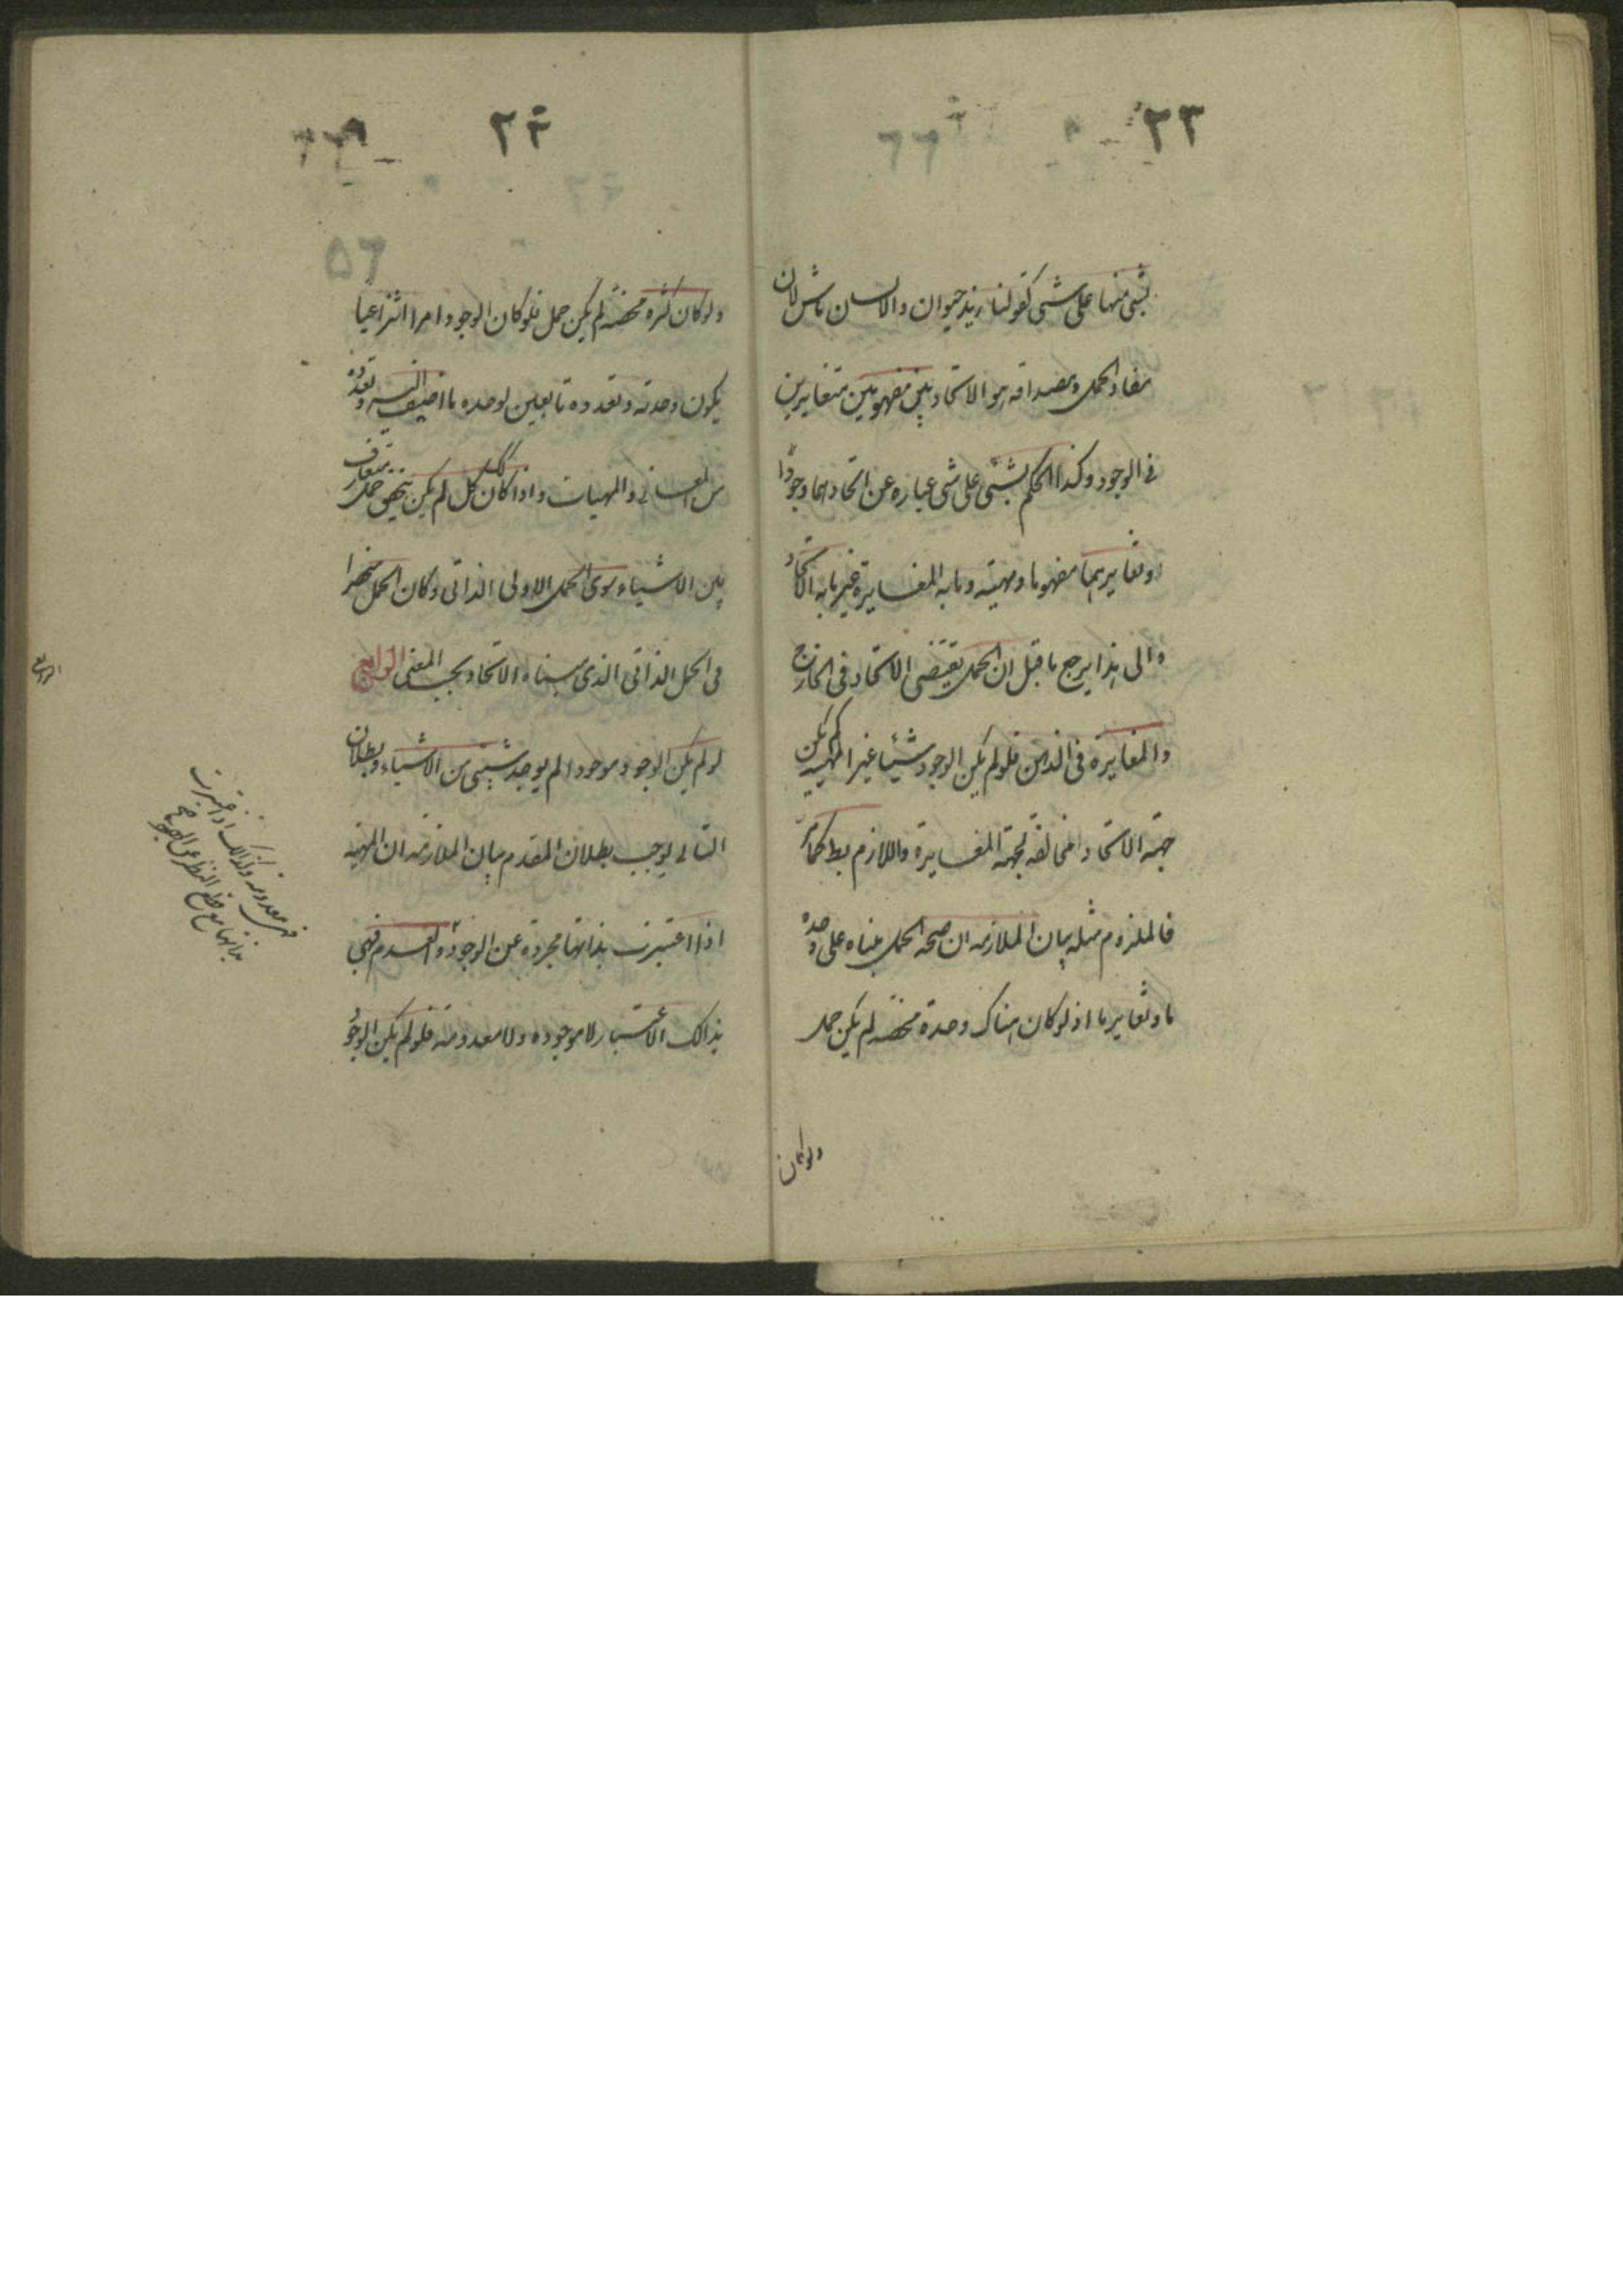 ٢٣
بشیء منها على شیء كقولنا زيد حيوان والانسان ماش لان
مفاد الحمل ومصداقه هو الاتحاد بين مفهومين متغايرين
فى الوجود وكذا الحكم بشیء على شیء عبارة عن اتحادهما وجودا
وتغايرهما مفهوما ومهية وما به المغايرة غير ما به الاتحاد
والى هذا يرجع ما قيل ان الحمل يقتضى الاتحاد فى الخارج
والمغايرة فى الذهن فلو لم يكن الوجود شيئا غير المهية لم يكن
جهة الاتحاد مخالفة لجهة المغايرة واللازم بط كما مر
فالملزوم مثله بيان الملازمه ان صحة الحمل مبناه على وحدة
ما وتغاير ما اذ لو كان هناك وحدة محضه لم يكن حمل
ولو كان
٢٤
٥٦
ولو كان كثره محضه لم يكن حمل فلو كان الوجود امرا انتزاعيا
يكون وحدته وتعدده تابعين لوحده ما اضيف اليه وتعدده
من المعانى والمهيات واذا كان كذلك لم يكن يتحقق حمل متعارف
بين الاشياء سوى الحمل الاولى الذاتى وكان الحمل منحصرا
فى الحمل الذاتى الذى مبناه الاتحاد بحسب المعنى الرابع
لو لم يكن الوجود موجودا لم يوجد شیء من الاشياء وبطلان
التالى يوجب بطلان المقدم بيان الملازمه ان المهية
اذا اعتبرت بذاتها مجردة عن الوجود والعدم فهى
بذالك الاعتبار لا موجوده ولا معدومة فلو لم يكن الوجود
الرابع
فهى معدومه وكذالك اذا اعتبرت
بذاتها مع قطع النظر عن الوجود